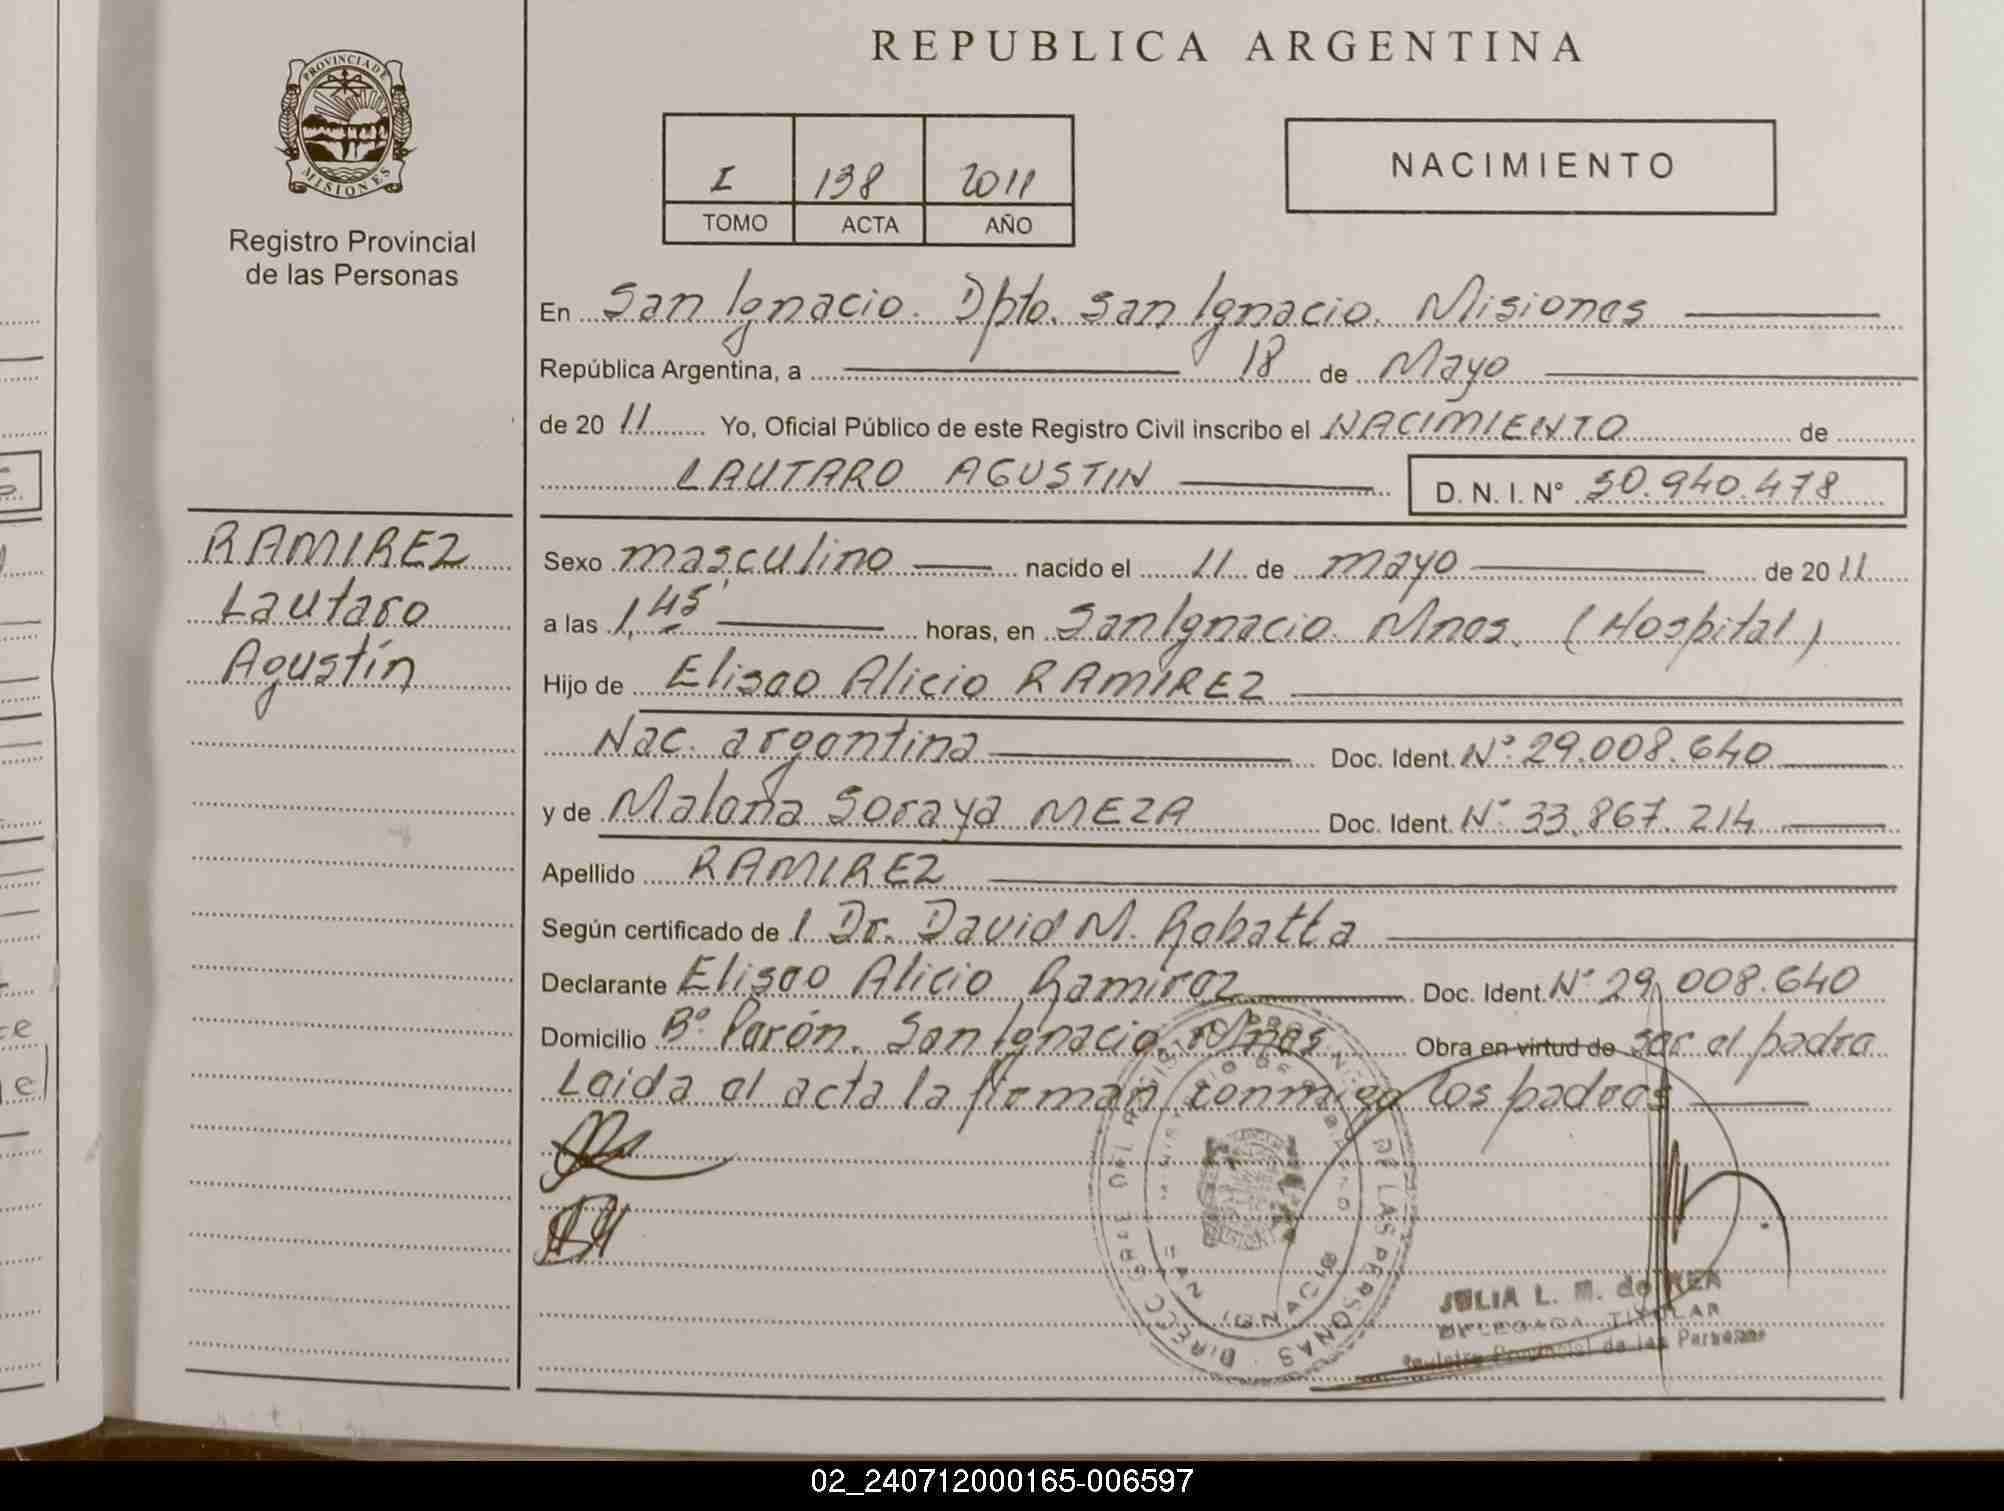 REPUBLICA ARGENTINA
PROVINCIA DE MISIONES
Registro Provincial
de las Personas
I 138 2011
TOMO ACTA AÑO
NACIMIENTO
En San Ignacio. Dpto. San Ignacio. Misiones
República Argentina, a 18 de Mayo
de 2011 Yo, Oficial Público de este Registro Civil inscribo el NACIMIENTO de
LAUTARO AGUSTIN D. N. I. Nº 50.940.478
RAMIREZ
Lautaro
Agustín
Sexo masculino nacido el 11 de mayo de 2011
a las 1,45 horas, en San Ignacio Mnes. (Hospital)
Hijo de Eliseo Alicio RAMIREZ
Nac. argentina Doc. Ident. Nº 29.008.640
y de Malena Soraya MEZA Doc. Ident. Nº 33.867.214
Apellido RAMIREZ
Según certificado de l Dr. David M. Robatta
Declarante Eliseo Alicio Ramirez Doc. Ident. Nº 29.008.640
Domicilio Bº Perón. San Ignacio Mnes Obra en virtud de ser el padre
Leida el acta la firman conmigo los padres
DE LAS PERSONAS
SAN IGNACIO
JULIA L. M. de
DELEGADA TITULAR
Registro Provincial de las Personas
02_240712000165-006597